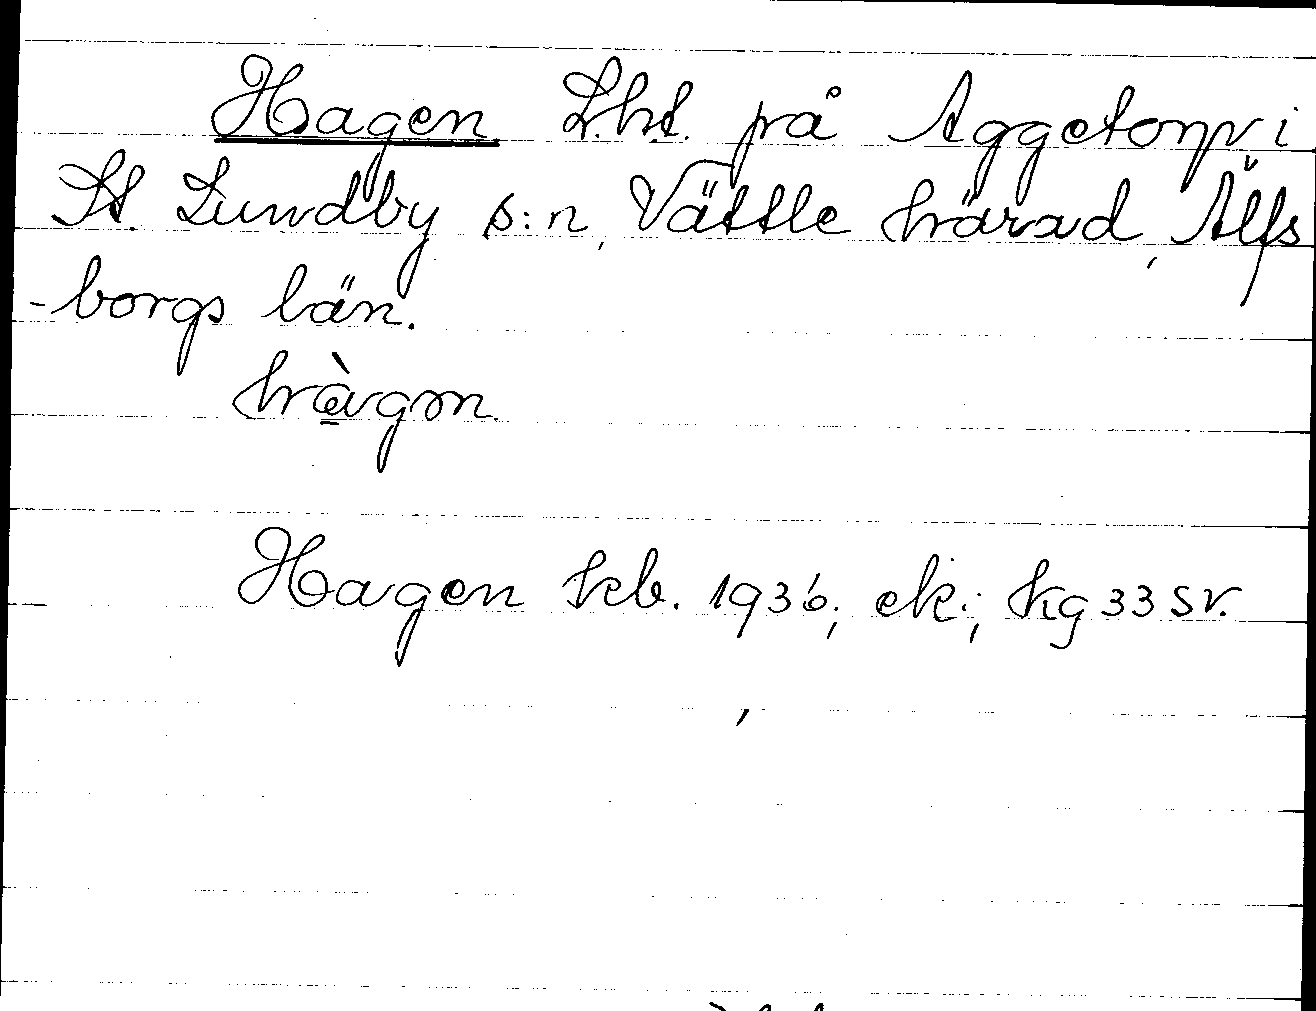 Hagen Lht. på Aggetorp i
St. Lundby s:n, Vättle härad, Älfs
-borgs län.
hàgɷn
Hagen kb. 1936; ek.; Kg 33 SV.